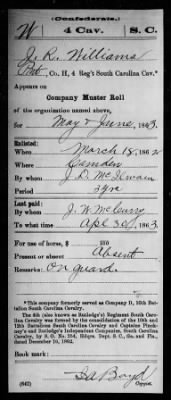 (Confederate.)
W 4 Cav. S. C.
J. R. Williams
Pvt, Co. H, 4 Reg't South Carolina Cav.*
Appears on
Company Muster Roll
of the organization named above,
for May & June, 1863.
Enlisted:
When March 18, 1862
Where Camden
By whom J. D. McIlwain
Period 3 yrs
Last paid:
By whom J. W. McCurry
To what time Apl 30, 1863
For use of horse, $
Present or absent Absent
Remarks: On guard.
*This company formerly served as Company D, 10th Battalion South Carolina Cavalry.
The 4th (also known as Rutledge's) Regiment South Carolina Cavalry was formed by the consolidation of the 10th and 12th Battalions South Carolina Cavalry and Captains Pinckney's and Rutledge's Independent Companies, South Carolina Cavalry, by S. O. No. 254, Hdqrs. Dept. S. C., Ga. and Fla., dated December 16, 1862.
Book mark:
(642) Boyd
Copyist.